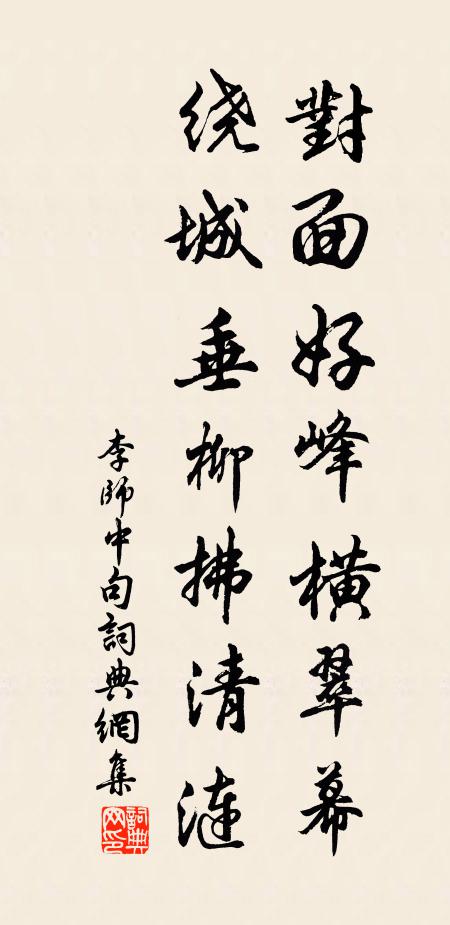 對面好峰橫翠幕
绕城垂柳拂清漣
李師中句詞典網集
詞典網印